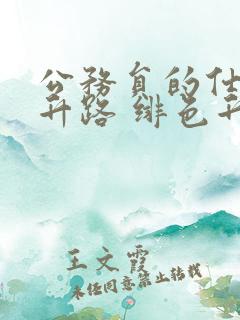 公務員的仕
升路 绯色升
王文霞
未经同意禁止转载